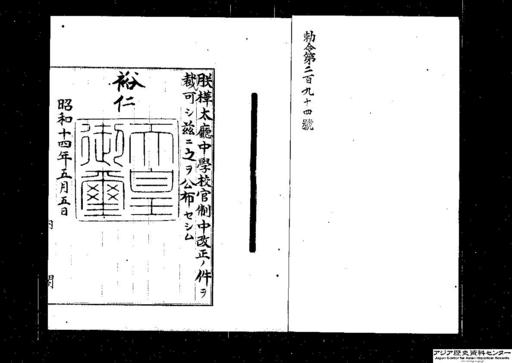 勅令第二百九十四號
朕樺太廳中學校官制中改正ノ件ヲ
裁可シ茲ニ之ヲ公布セシム
裕仁
天皇御璽
昭和十四年五月五日
内閣
アジア歴史資料センター
Japan Center for Asian Historical Records